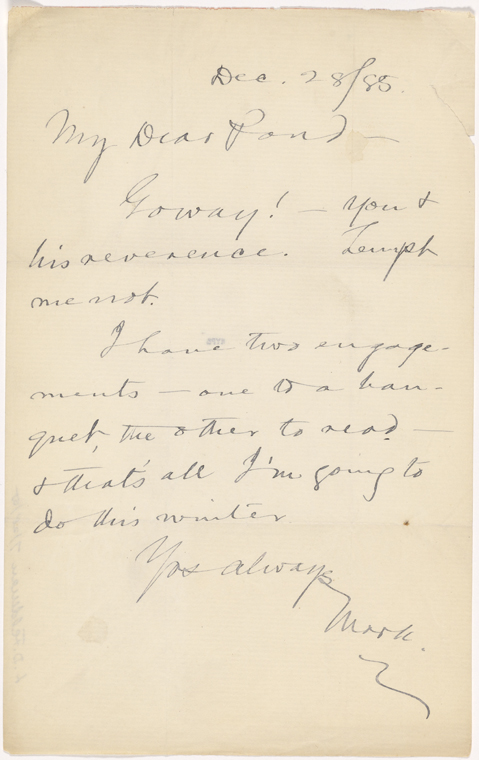 Dec. 28/85.
My Dear Pond —
Goway! — you &
his reverence. Tempt
me not.
I have two engage-
ments — one to a ban-
quet, the other to read —
& that's all I'm going to
do this winter
Yrs always
Mark.